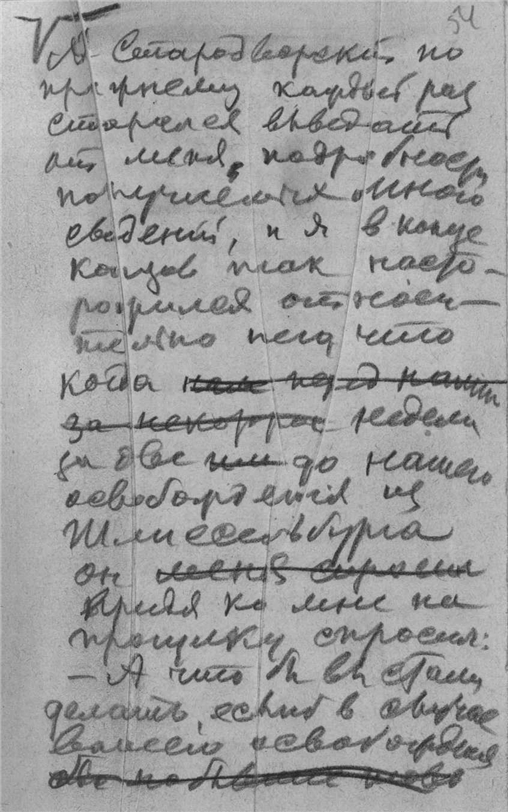 54
А Стародворский по
прежнему каждый раз
старался выведать
от меня, подробности
сведений, и я в конце
концов так насто-
рожился относи-
тельно него, что
когда перед нашим
за некоторое недели
за две до нашего
освобождения из
Шлиссельбурга
он меня спросил
придя ко мне на
прогулку спросил:
— А что бы вы стали
делать, еслиб в случае
вашего освобождения